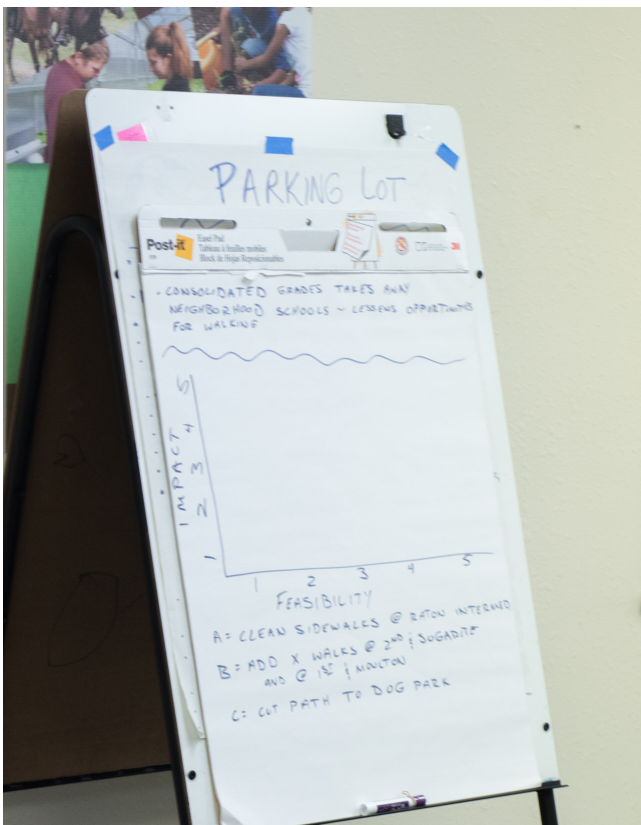 PARKING LOT
Post-it
Easel Pad
Tableau à feuilles mobiles
Block de Hojas Reposicionables
3M
- CONSOLIDATED GRADES TAKES AWAY
NEIGHBORHOOD SCHOOLS ~ LESSENS OPPORTUNITES
FOR WALKING
5
4
3
2
1
IMPACT
1 2 3 4 5
FEASIBILITY
A = CLEAN SIDEWALKS @ RATON INTERMED
B = ADD X WALKS @ 2ND & SUGARITE
AND @ 1ST & MOULTON
C = CUT PATH TO DOG PARK